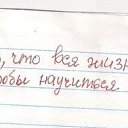 , что вся жизн
обы научиться